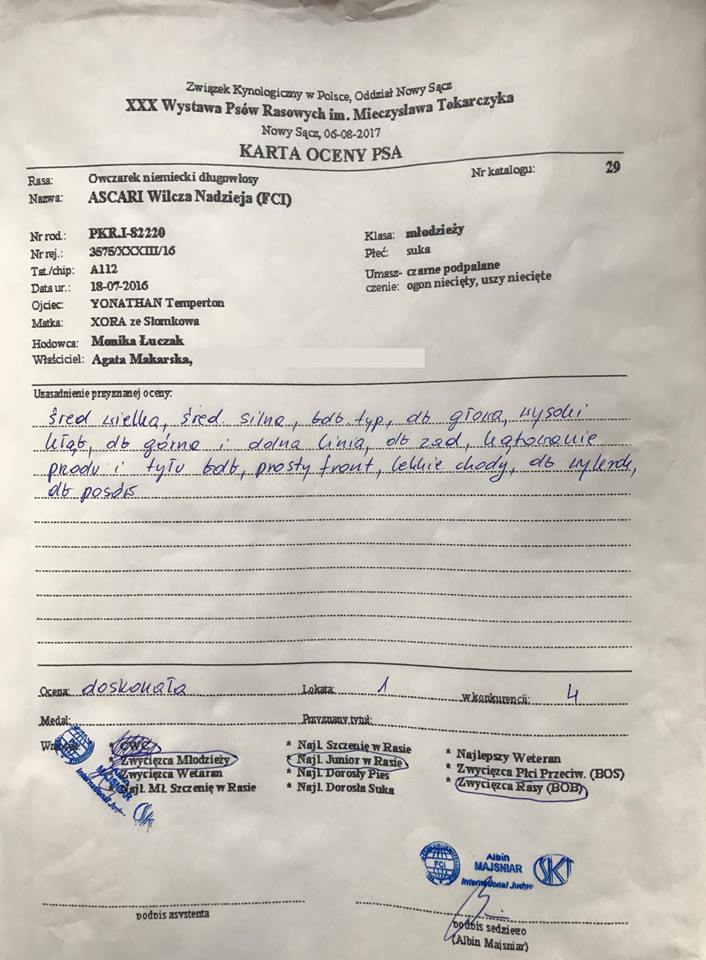 Związek Kynologiczny w Polsce, Oddział Nowy Sącz
XXX Wystawa Psów Rasowych im. Mieczysława Tokarczyka
Nowy Sącz, 06-08-2017
KARTA OCENY PSA
Rasa: Owczarek niemiecki długowłosy Nr katalogu: 29
Nazwa: ASCARI Wilcza Nadzieja (FCI)
Nr rod.: PKR.I-82220 Klasa: młodzieży
Nr rej.: 3575/XXXIII/16 Płeć: suka
Tat./chip: A112 Umasz- czarne podpalane
Data ur.: 18-07-2016 czenie: ogon niecięty, uszy niecięte
Ojciec: YONATHAN Temperton
Matka: XORA ze Słomkowa
Hodowca: Monika Łuczak
Właściciel: Agata Makarska,
Uzasadnienie przyznanej oceny:
śred wielka, śred. silna, bdb. typ, db głowa, wysoki
kłąb, db górna i dolna linia, db zad, kątowanie
przodu i tyłu bdb, prosty front, lekkie chody, db
db
Ocena: doskonała Lokata: 1 w konkurencji: 4
Medal: Przyznany tytuł:
* CWC * Najl. Szczenię w Rasie * Najlepszy Weteran
* Zwycięzca Młodzieży * Najl. Junior w Rasie * Zwycięzca Płci Przeciw. (BOS)
* Zwycięzca Weteran * Najl. Dorosły Pies * Zwycięzca Rasy (BOB)
* Najl. Mł. Szczenię w Rasie * Najl. Dorosła Suka
MAJSNIAR
International Judge
FCI Albin
MAJSNIAR
International Judge
SKJ
podpis asystenta podpis sędziego
(Albin Majsniar)